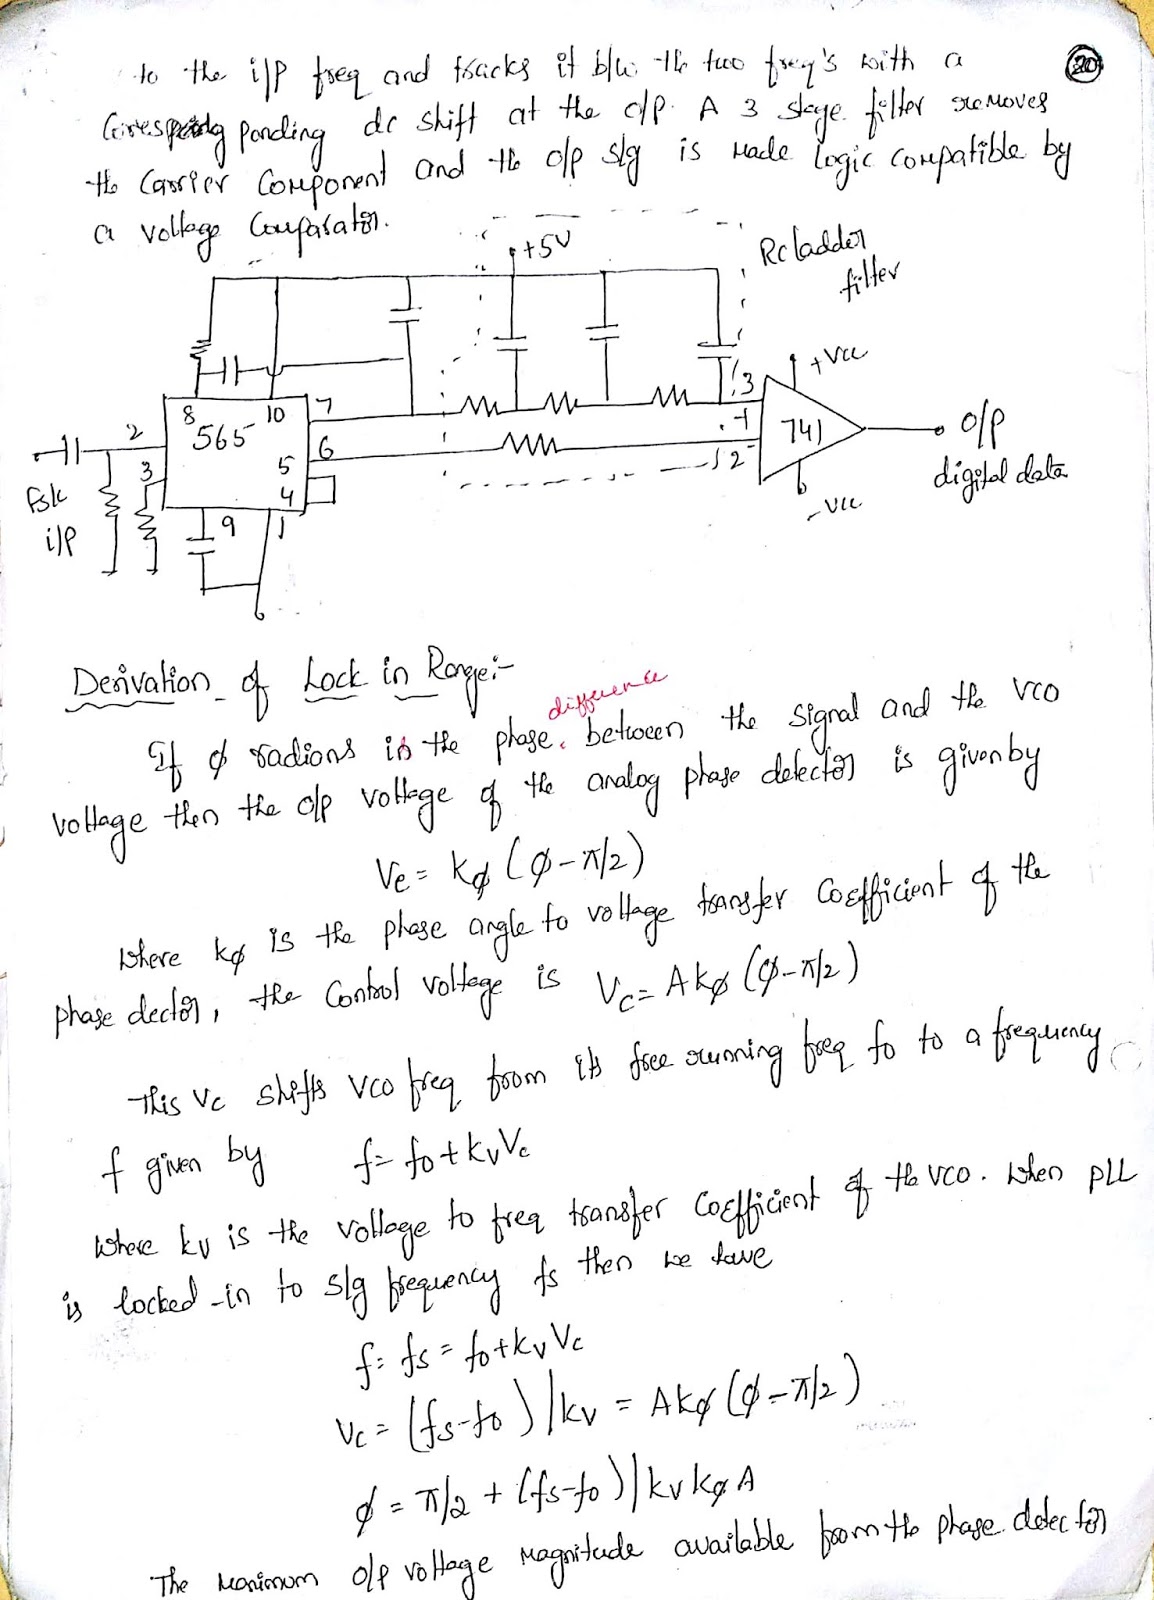 to the i/p freq and tracks it b/w the two freq's with a
20
Corresponding ponding dc shift at the o/p. A 3 stage filter removes
the Carrier Component and the o/p s/g is made logic compatible by
a voltage Comparator.
+5V
Rc ladder
filter
+Vcc
8
10
7
3
565
2
3
6
5
4
741
o/p
digital data
2
fsk
i/p
9
1
-Vcc
Derivation of Lock in Range:-
difference
If ϕ radians is the phase between the signal and the VCO
voltage then the o/p voltage of the analog phase detector is given by
Ve = kϕ (ϕ-π/2)
Where kϕ is the phase angle to voltage transfer Coefficient of the
phase dector, the Control voltage is Vc= A kϕ (ϕ-π/2)
This Vc shifts VCO freq from its free running freq fo to a frequency
f given by f= fo+kvVc
Where kv is the voltage to freq transfer Coefficient of the VCO. When PLL
is locked-in to s/g frequency fs then we have
f= fs = fo+kvVc
Vc = (fs-fo)/kv = A kϕ (ϕ-π/2)
ϕ = π/2 + (fs-fo)/kv kϕ A
The maximum o/p voltage magnitude available from the phase detector